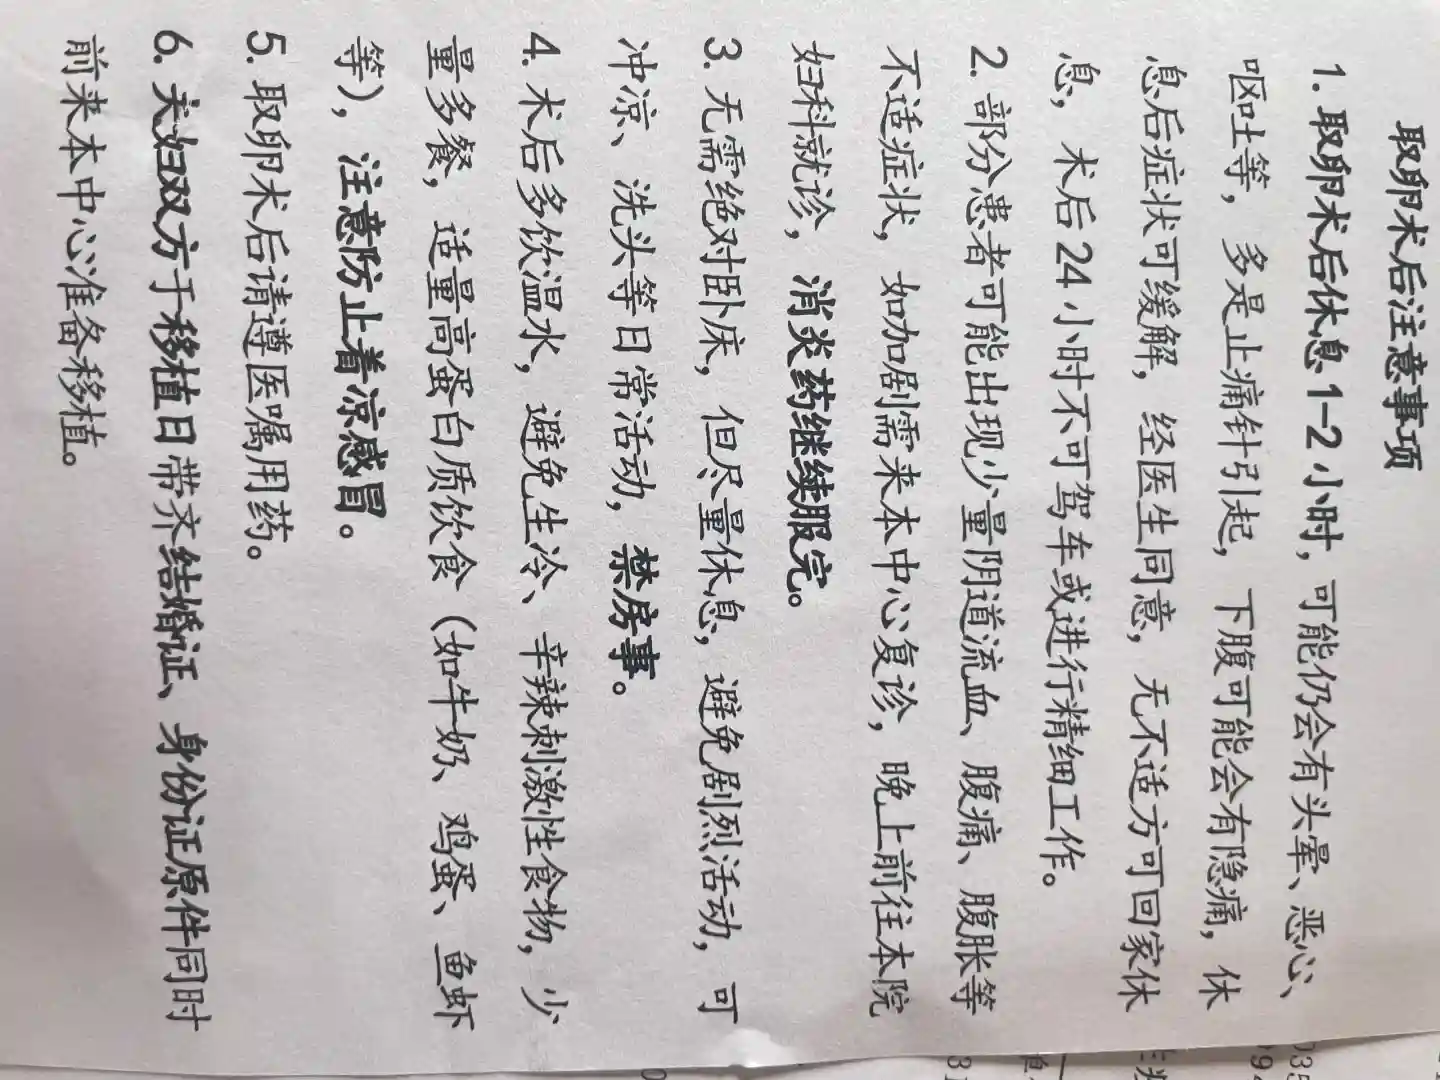 取卵术后注意事项
1. 取卵术后休息1-2小时，可能仍会有头晕、恶心、
呕吐等，多是止痛针引起，下腹可能会有隐痛，休
息后症状可缓解，经医生同意，无不适方可回家休
息，术后24小时不可驾车或进行精细工作。
2. 部分患者可能出现少量阴道流血、腹痛、腹胀等
不适症状，如加剧需来本中心复诊，晚上前往本院
妇科就诊，消炎药继续服完。
3. 无需绝对卧床，但尽量休息，避免剧烈活动，可
冲凉、洗头等日常活动，禁房事。
4. 术后多饮温水，避免生冷、辛辣刺激性食物，少
量多餐，适量高蛋白质饮食（如牛奶、鸡蛋、鱼虾
等），注意防止着凉感冒。
5. 取卵术后请遵医嘱用药。
6. 夫妇双方于移植日带齐结婚证、身份证原件同时
前来本中心准备移植。